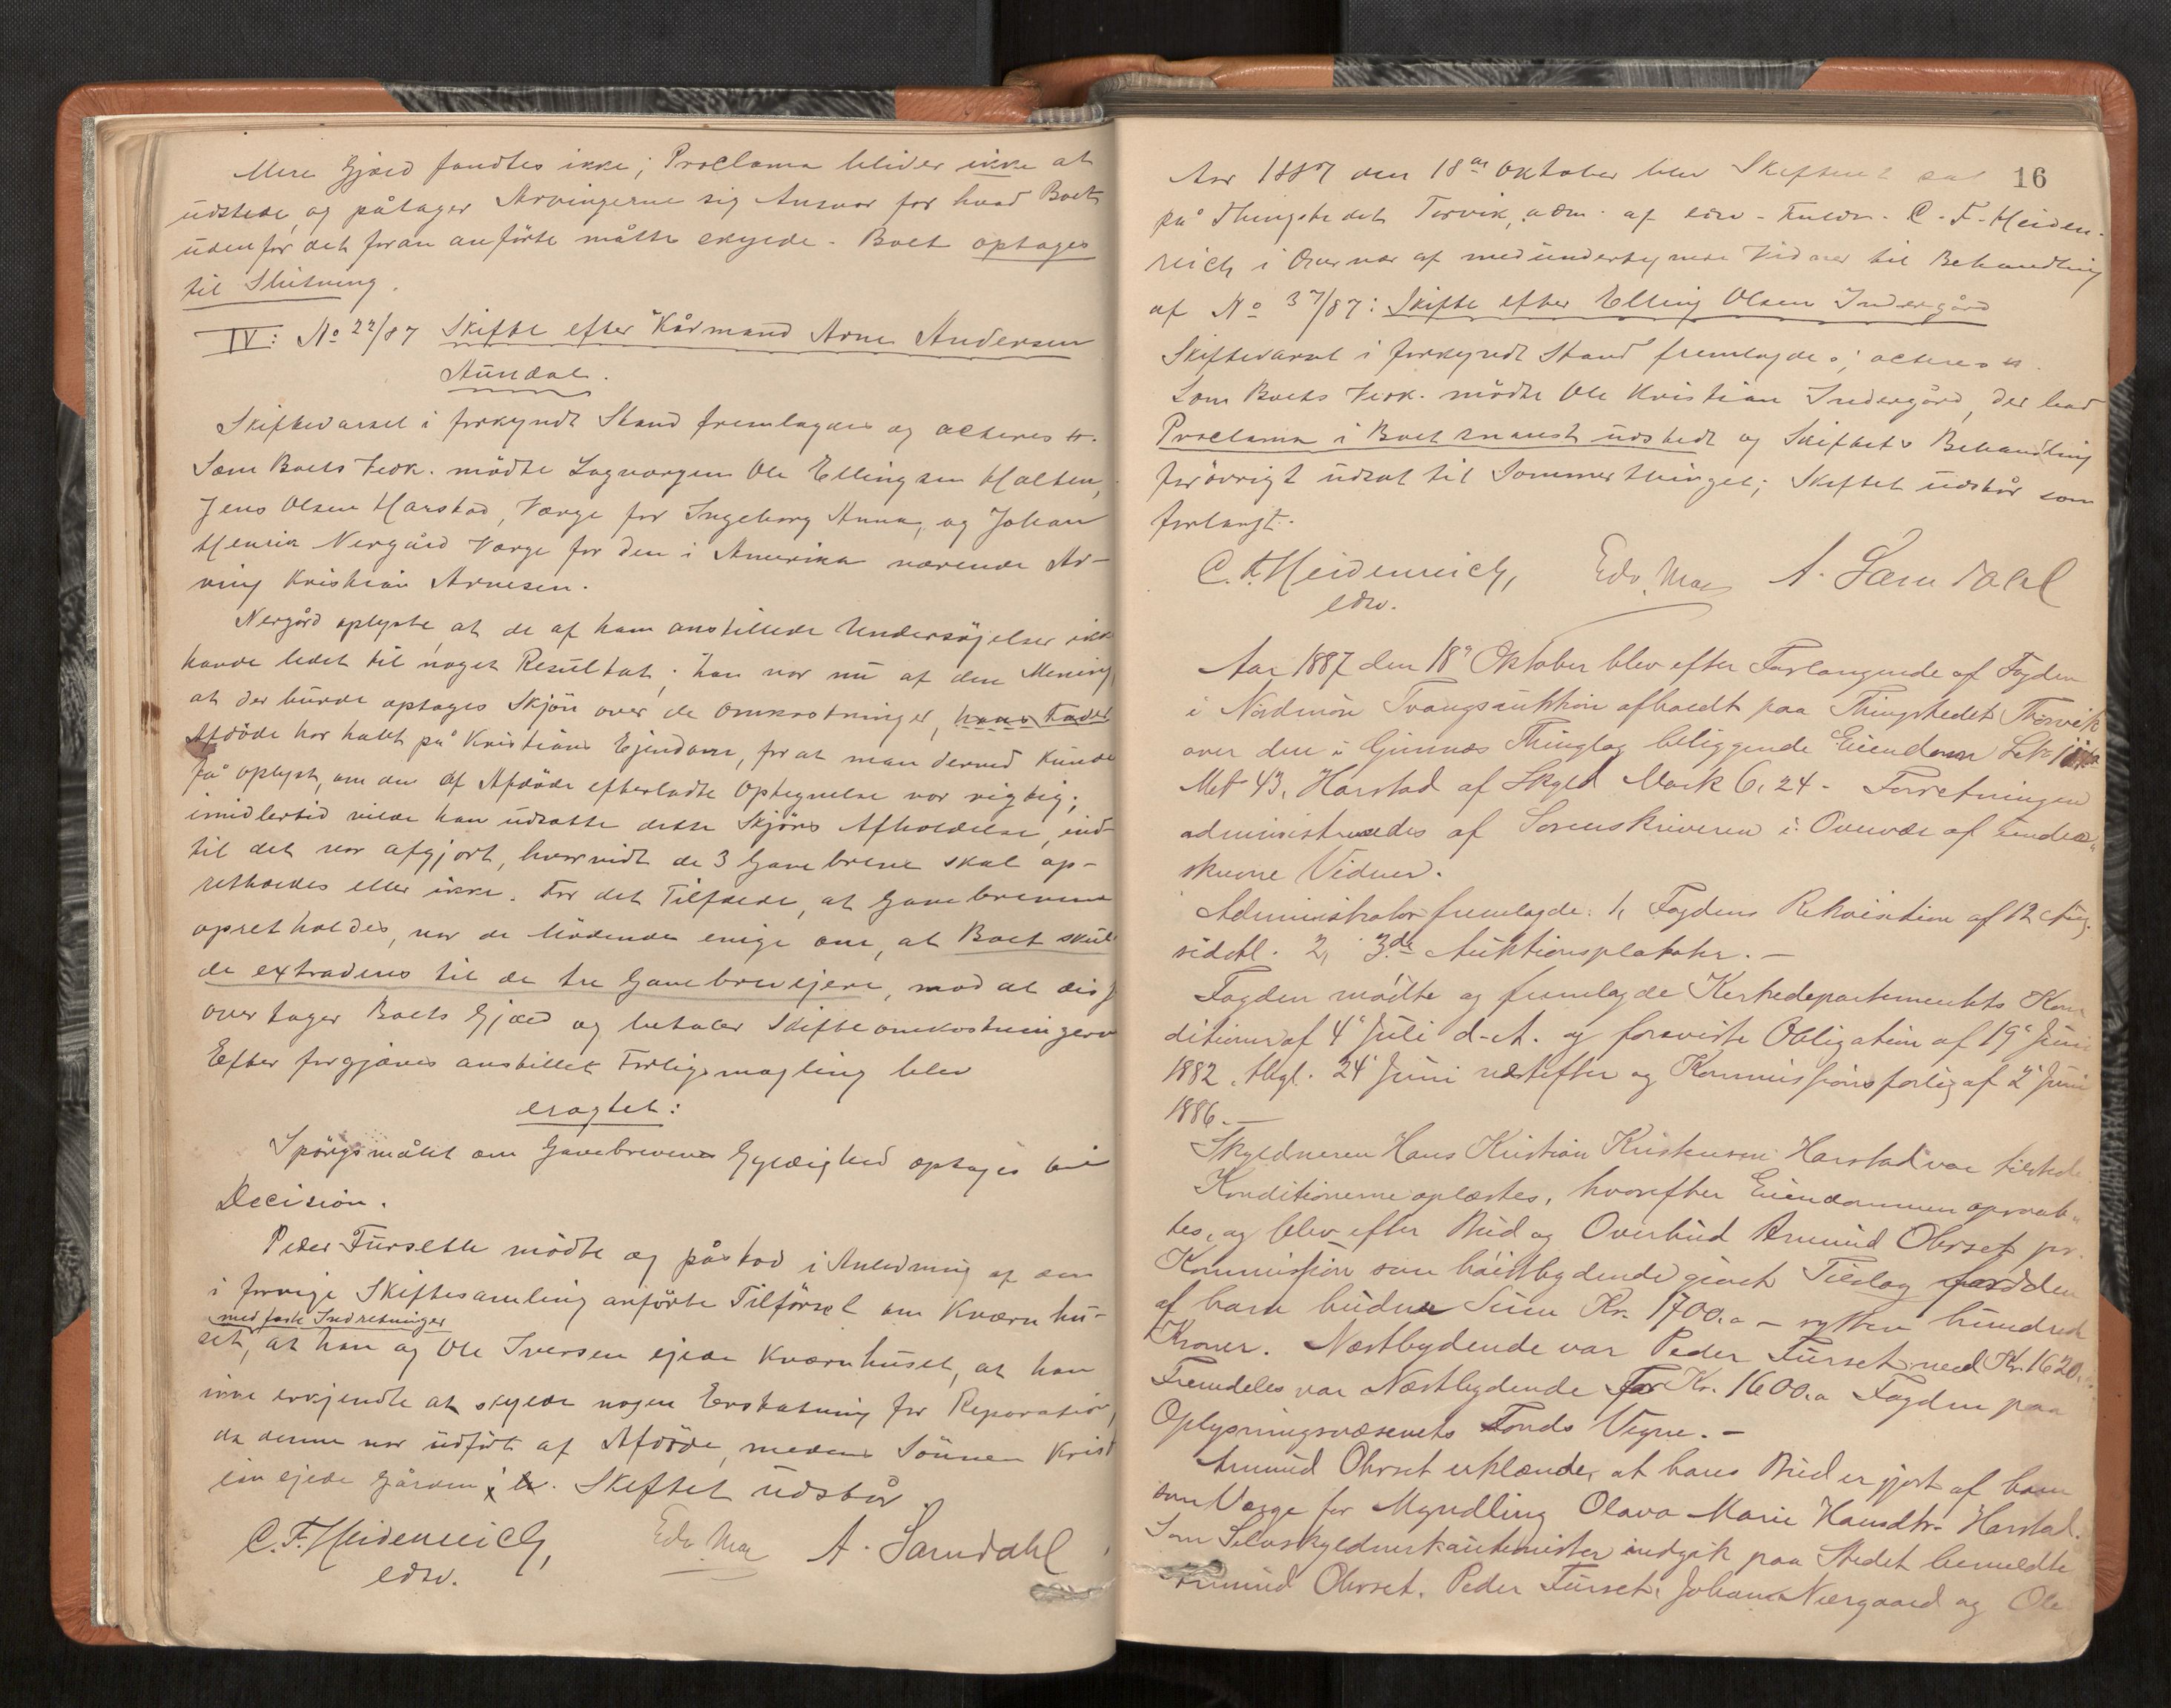 Mere Gjæld fandtes ikke; Proclama bliver ikke at
udstede, og påtager Arvingerne sig Ansvar for hvad Boet
udenfor det foran anførte måtte skylde. Boet optages
til Slutning.
IV: No 22/87 Skifte efter Kårmand Arne Andersen
Aundal.
Skiftevarsel i forkyndt Stand fremlagdes og acteres
Som Boets Vedk. mødte Lagvergen Ole Ellingsen Halten,
Jens Olsen Harstad, Værge for Ingeborg Anna, og Johan
Henrik Nergård Værge for den i Amerika værende Ar-
ving Kristian Arnesen.
Nergård oplyste, at de af ham anstillede Undersøjelser ikke
havde ledet til noget Resultat; han var nu af den Mening
at der burde optages Skjøn over de Omkostninger, hans Fader
Afdøde har havt på Kristians Ejendom, for at man derved kunde
få oplyst, om den af Afdøde efterladte Optegnelse var rigtig;
imidlertid vilde han udsætte dette Skjøns Afholdelse, ind-
til det var afgjort, hvorvidt de 3 Gavebreve skal op-
retholdes eller ikke. For det Tilfælde, at Gavebrevene
opretholdes, var de Mødende enige om, at Boet skul-
de extraderes til de tre Gavebrevejere, mod at disse
overtager Boets Gjæld og betaler Skifteomkostningerne
Efter forgjæves anstillet Forligsmægling blev
eragtet:
Spørgsmålet om Gavebrevenes Gyldighed optages til
Decision.
Peder Furseth mødte og påstod i Anledning af den
i forrige Skiftesamling anførte Tilførsel om Kværnhu-
med faste Indretninger
set, at han og Ole Iversen ejede Kværnhuset, at han
ikke erkjendte at skylde nogen Erstatning for Reparation,
da denne var udført af Afdøde, medens Sønnen Krist
ian ejede Gården; Skiftet udstår
C. F. Heidenreich, Edv. Moe A. Samdahl
edsv.
16
Aar 1887 den 18de Oktober blev Skifteret sat
på Thingstedet Torvik, adm. af edsv. Fuldm. C. F. Heiden-
reich i Overvær af medunderskrevne Vidner til Behandling
af No 37/87: Skifte efter Elling Olsen Indergård
Skiftevarsel i forkyndt Stand fremlagdes; acteres
Som Boets Vedk. mødte Ole Kristian Indergård, der bad
Proclama i Boet snarest udstedt og Skiftets Behandling
forøvrigt udsat til Sommerthinget; Skiftet udstår som
forlangt.
C. F. Heidenreich, Edv. Moe A. Samdahl
edsv.
Aar 1887 den 18de Oktober blev efter Forlangende af Fogden
i Nordmøre Tvangsauktion afholdt paa Thingstedet Thorvik
over den i Gimnæs Thinglag beliggende Eiendom
Mat 43, Harstad af Skyld Mark 6,24 - Forretningen
administreredes af Sorenskriveren i Overvær af under-
skrevne Vidner.
Administrator fremlagde: 1, Fogdens Rekvisition af 12 Aug.
sidstl. 2, 3de Auktionsplakater. -
Fogden mødte og fremlagde Kirkedepartementets Kon
ditioner af 4de Juli d. A. og foreviste Obligation af 19de Juni
1882, thgl. 24 Juni næstefter og Kommissionsforlig af 2 Juni
1886. -
Skyldneren Hans Kristian Kristensen Harstad var tilstede.
Konditionerne oplæstes, hvorefter Eiendommen opraab-
tes, og blev efter Bud og Overbud Amund Ohrset pr.
Kommission som høistbydende givet Tilslag for den
af ham budne Sum Kr. 1700.- - sytten hundrede
Kroner. Næstbydende var Peder Furset med Kr. 1620.
Fremdeles var Næstbydende for Kr. 1600.- Fogden paa
Oplysningsvæsenets Fonds Vegne. -
Amund Ohrset erklærede, at hans Bud er gjort af ham
som Værge for Myndling Olava Marie Hansdtr. Harstad.
Som Selvskyldnerkautionister indgik paa Stedet bemeldte
Amund Ohrset, Peder Furset, Johan Nergaard og Ole